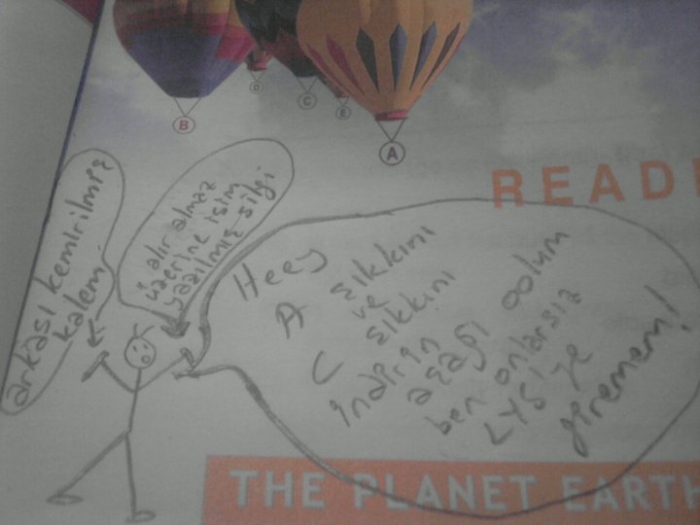 B
D
C
E
A
READ
arkası kemirilmiş
kalem
alır almaz
üzerine isim
yazılmış silgi
Heey
A şıkkını
ve
C şıkkını
indirin
aşağı oolum
ben onlarsız
LYS'ye
giremem!
THE PLANET EARTH